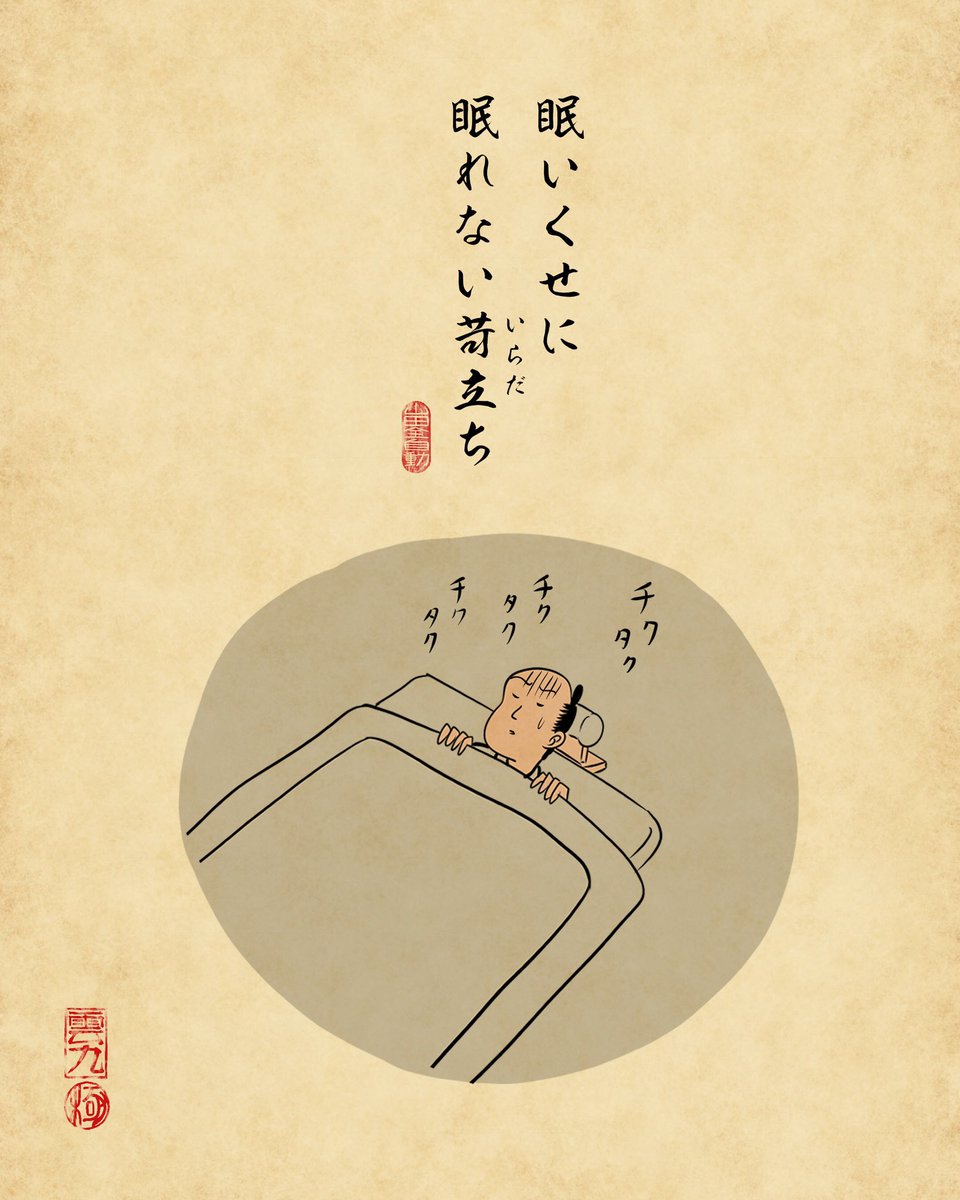 眠いくせに
眠れない苛立ち
いらだ
チク
タク
チク
タク
チク
タク